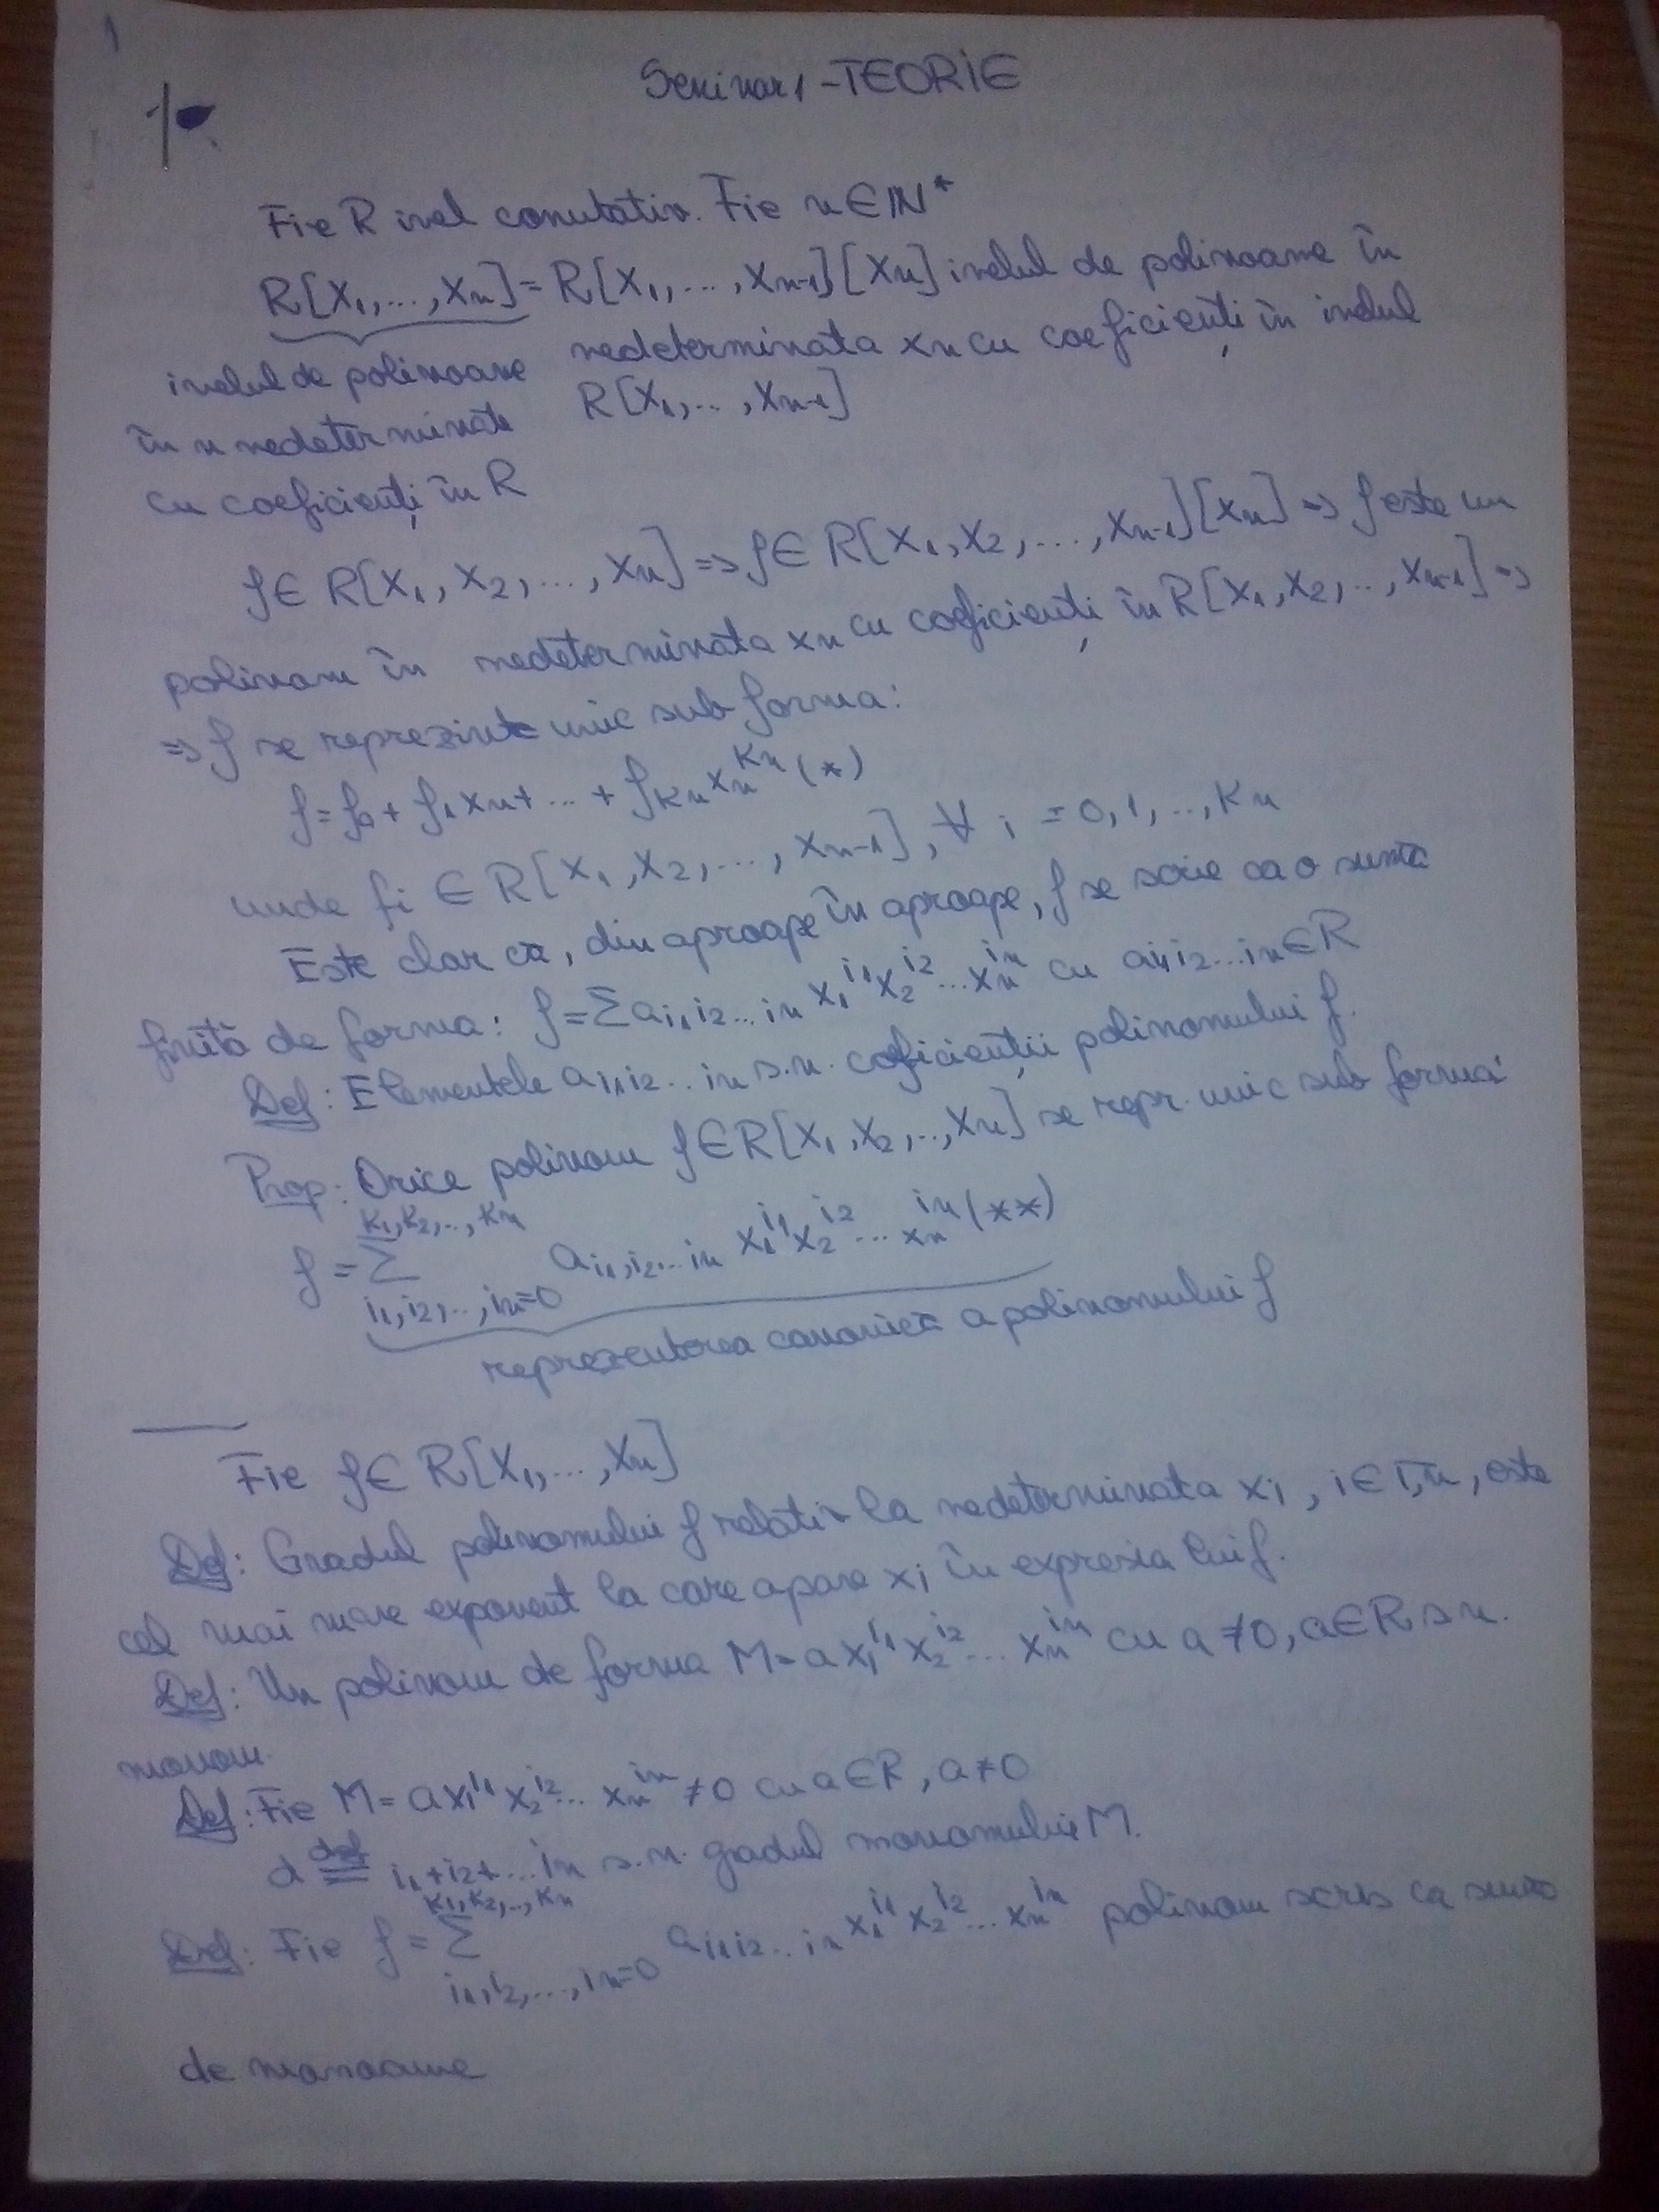 1
Seminar 1 - TEORIE
1
Fie R inel comutativ. Fie n ∈ ℕ*
R[X₁,...,Xₙ] = R[X₁,...,Xₙ₋₁][Xₙ] inelul de polinoame în
inelul de polinoame nedeterminata Xₙ cu coeficienți în inelul
în n nedeterminate R[X₁,...,Xₙ₋₁]
cu coeficienți în R
f ∈ R[X₁,X₂,...,Xₙ] => f ∈ R[X₁,X₂,...,Xₙ₋₁][Xₙ] => f este un
polinom în nedeterminata Xₙ cu coeficienți în R[X₁,X₂,..,Xₙ₋₁] =>
=> f se reprezintă unic sub forma:
f = f₀ + f₁Xₙ + ... + f_{kₙ} Xₙ^{kₙ} (*)
unde fᵢ ∈ R[X₁,X₂,...,Xₙ₋₁], ∀ i = 0,1,..,kₙ
Este clar că, din aproape în aproape, f se scrie ca o sumă
finită de forma: f = Σ a_{i₁i₂...iₙ} X₁^{i₁} X₂^{i₂} ... Xₙ^{iₙ} cu a_{i₁i₂...iₙ} ∈ R
Def: Elementele a_{i₁i₂...iₙ} s.n. coeficienții polinomului f.
Prop: Orice polinom f ∈ R[X₁,X₂,..,Xₙ] se repr. unic sub forma:
f = Σ_{i₁,i₂,..,iₙ=0}^{k₁,k₂,..,kₙ} a_{i₁,i₂...iₙ} X₁^{i₁} X₂^{i₂} ... Xₙ^{iₙ} (**)
reprezentarea canonică a polinomului f
Fie f ∈ R[X₁,...,Xₙ]
Def: Gradul polinomului f relativ la nedeterminata Xᵢ, i ∈ 1,n, este
cel mai mare exponent la care apare Xᵢ în expresia lui f.
Def: Un polinom de forma M = a X₁^{i₁} X₂^{i₂} ... Xₙ^{iₙ} cu a ≠ 0, a ∈ R s.n.
monom.
Def: Fie M = a X₁^{i₁} X₂^{i₂} ... Xₙ^{iₙ} ≠ 0 cu a ∈ R, a ≠ 0
d =^{def} i₁+i₂+...iₙ s.n. gradul monomului M.
Def: Fie f = Σ_{i₁,i₂,...,iₙ=0}^{k₁,k₂,..,kₙ} a_{i₁i₂...iₙ} X₁^{i₁} X₂^{i₂} ... Xₙ^{iₙ} polinom scris ca sumă
de monoame